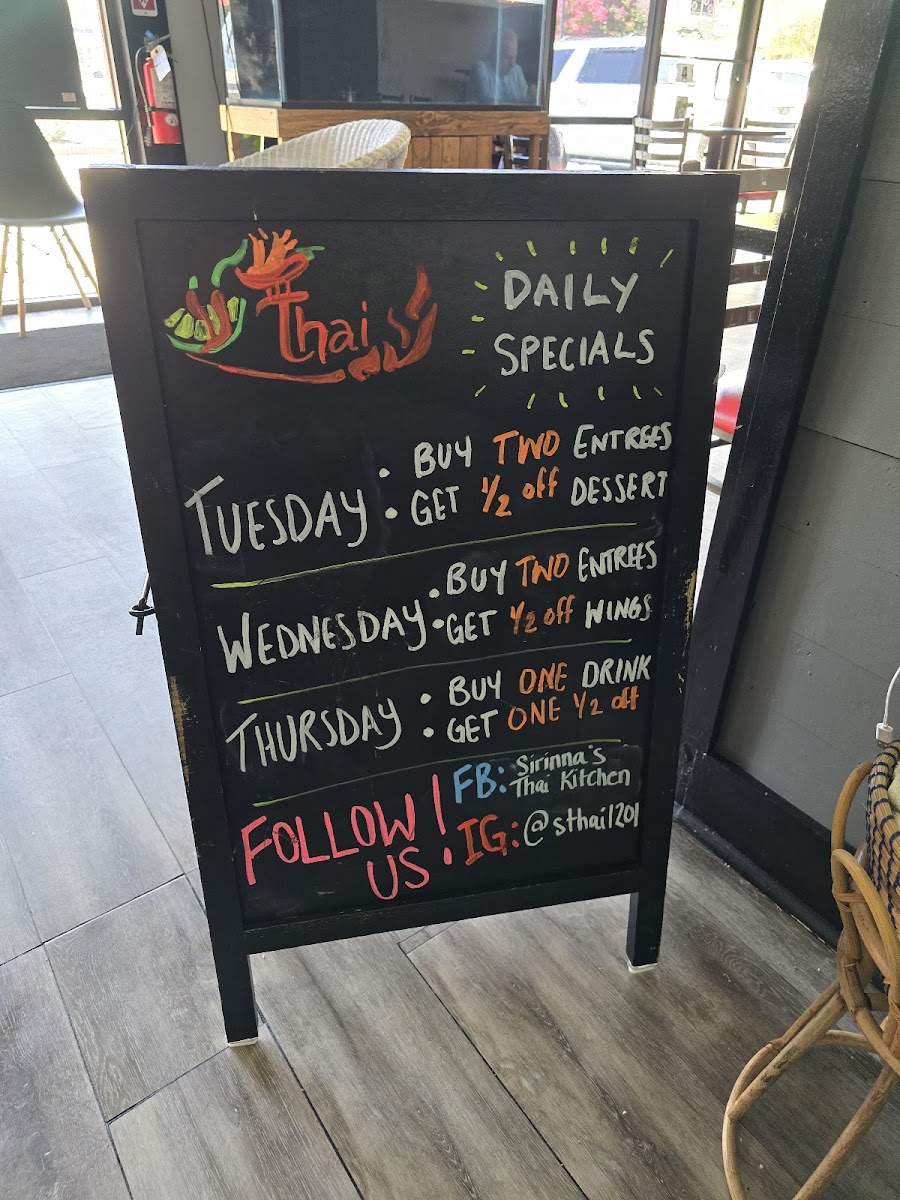 Thai
DAILY
SPECIALS
TUESDAY
• BUY TWO ENTREES
• GET 1/2 off DESSERT
WEDNESDAY
• BUY TWO ENTREES
• GET 1/2 off WINGS
THURSDAY
• BUY ONE DRINK
• GET ONE 1/2 off
FOLLOW
US!
FB: Sirinna's
Thai Kitchen
IG: @sthai1201